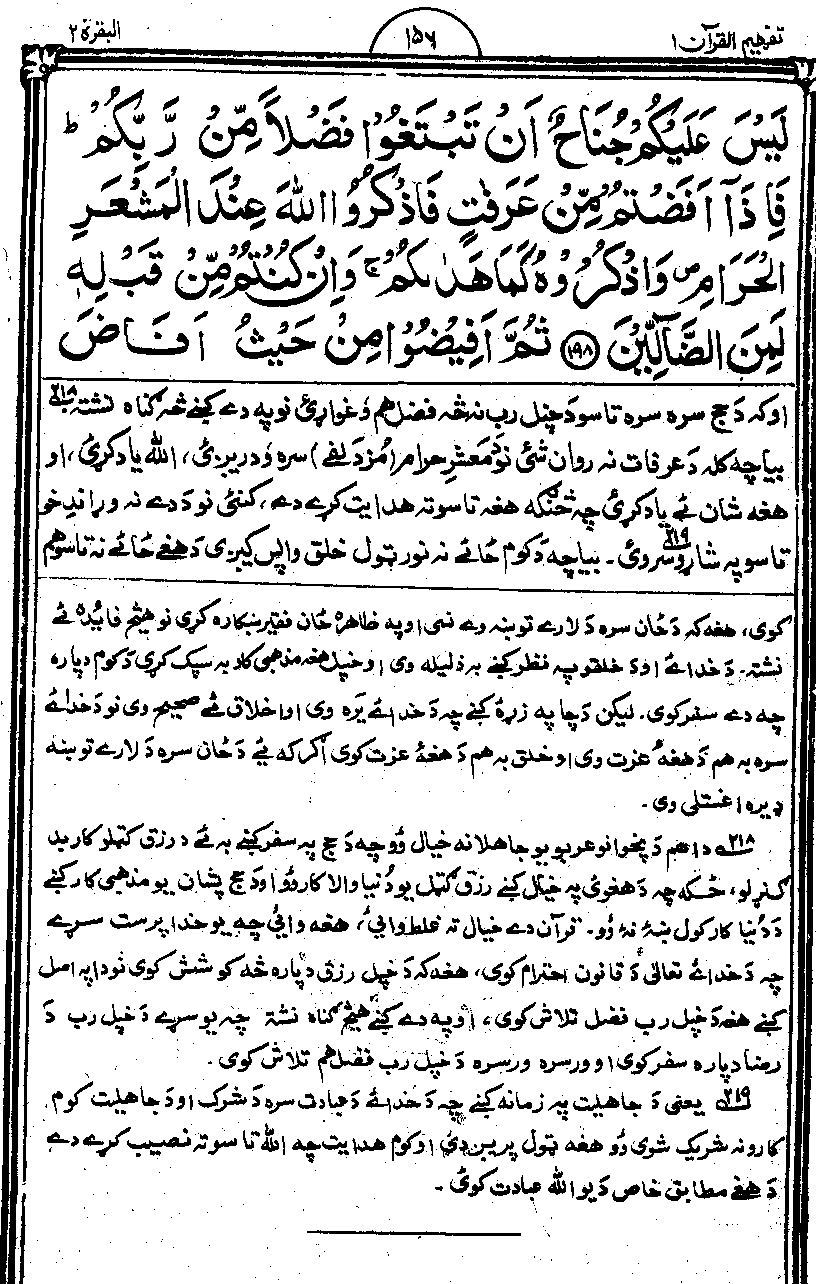 تفہیم القرآن ۱
۱۵۶
البقرة ۲
لَيْسَ عَلَيْكُمْ جُنَاحٌ اَنْ تَبْتَغُوْا فَضْلاً مِّنْ رَّبِّكُمْ ؕ
فَاِذَآ اَفَضْتُمْ مِّنْ عَرَفٰتٍ فَاذْكُرُوا اللّٰهَ عِنْدَ الْمَشْعَرِ
الْحَرَامِ ۪ وَاذْكُرُوْهُ كَمَا هَدٰىكُمْ ۚ وَاِنْ كُنْتُمْ مِّنْ قَبْلِهٖ
لَمِنَ الضَّآلِّيْنَ ﴿۱۹۸﴾ ثُمَّ اَفِيْضُوْا مِنْ حَيْثُ اَفَاضَ
اوکہ دَحج سرہ سرہ تاسو دَخپل رب نہ څہ فضل هم وَغواړئ نو پہ دے کښے څہ ګناہ نشتہ ۲۱۸
بیا چہ کلہ دَعرفات نہ روان شئ نو دَ مشعرِ حرام (مُزدلفے) سرہ وَدریږئ، اللّٰہ یاد کړئ، او
هغہ شان ئے یاد کړئ چہ څنګہ هغہ تاسو تہ هدایت کړے دے، ګنی نو دَدے نہ وړاندِ خو
تاسو پہ شا روسروئ ۲۱۹۔ بیا چہ دَکوم ځائے نہ نور ټول خلق واپس کیږی دَهغے ځائے نہ تاسو هم
کوی، هغہ کہ دَځان سرہ دَلارے توښہ وے نسی او پہ ظاهرہ ځان فقیر ښکارہ کړی نو هیڅ فائدہ ئے
نشتہ۔ دَخدائے او دَ خلقو پہ نظر کښے بہ ذلیلہ وی او خپل هغہ مذهبی کار بہ سپک کړی دَکوم دپارہ
چہ دے سفر کوی۔ لیکن دَچا پہ زړہ کښے چہ دَخدائے یرہ وی او اخلاق ئے صحیح وی نو دَخدائے
سرہ بہ هم دَهغہ عزت وی او خلق بہ هم دَهغہ عزت کوی اګرکہ ئے دَځان سرہ دَلارے توښہ
ډیرہ اغستلی وی۔
۲۱۸ دا هم دَپخوانو عربو یو جاهلانہ خیال وُو چہ دَحج پہ سفر کښے بہ ئے دَ رزق ګټلو کار بد
ګنړلو، ځکہ چہ دَهغوی پہ خیال کښے رزق ګټل یو دُنیا والا کار وُو او دَحج پشان یو مذهبی کار کښے
دَدُنیا کار کول ښہ نہ وُو۔ قرآن دے خیال تہ غلط وائی، هغہ وائی چہ یو خدا پرست سړے
چہ دَخدائے تعالٰی دَ قانون احترام کوی، هغہ کہ دَخپل رزق دپارہ څہ کوشش کوی نو دا پہ اصل
کښے هغہ دَخپل رب فضل تلاش کوی، او پہ دے کښے هیڅ ګناہ نشتہ چہ یو سړے دَخپل رب دَ
رضا دپارہ سفر کوی او ورسرہ ورسرہ دَخپل رب فضل هم تلاش کوی۔
۲۱۹ یعنی دَ جاهلیت پہ زمانہ کښے چہ دَخدائے دَعبادت سرہ دَشرک او دَجاهلیت کوم
کارونہ شریک شوی وُو هغہ ټول پریږدئ او کوم هدایت چہ اللّٰہ تاسو تہ نصیب کړے دے
دَهغے مطابق خاص دَیو اللّٰہ عبادت کوئ۔